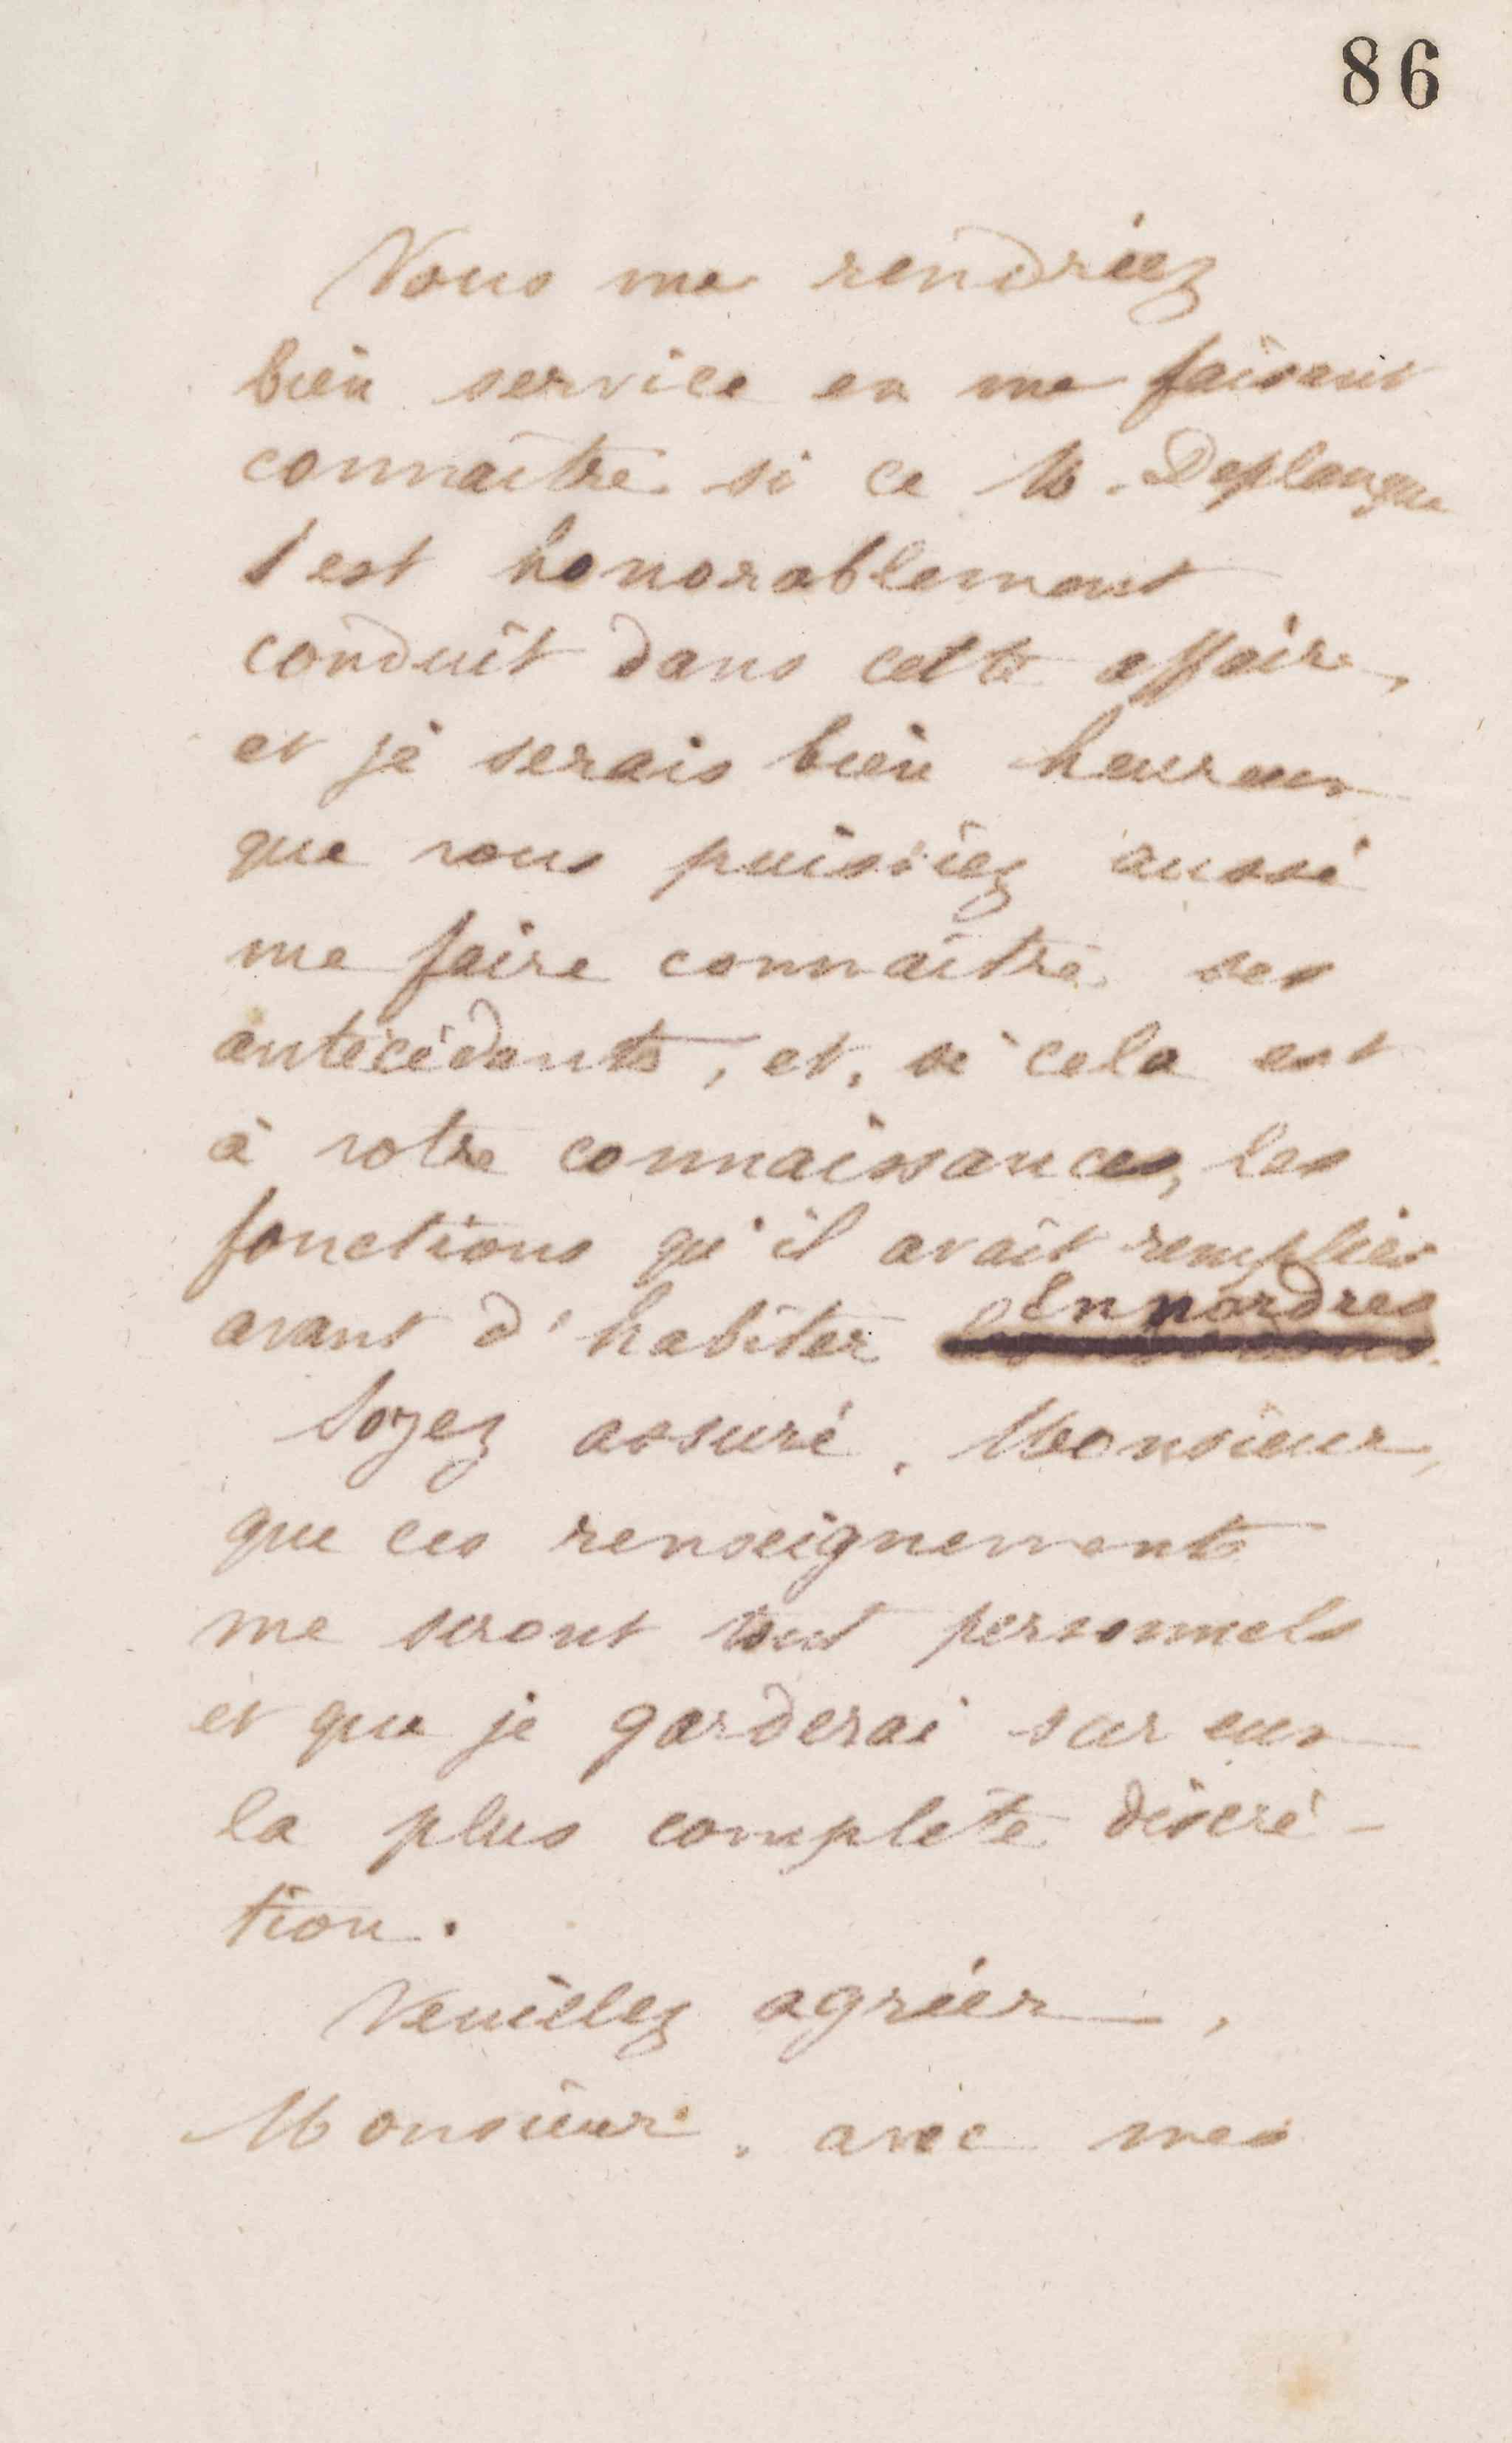 86
Vous me rendriez
bien service en me faisant
connaître si ce M. Deplanque
s'est honorablement
conduit dans cette affaire,
et je serais bien heureux
que vous puissiez aussi
me faire connaître ses
antécédents, et, si cela est
à votre connaissance, les
fonctions qu'il avait remplies
avant d'habiter
Soyez assuré, Monsieur,
que ces renseignements
me seront tout personnels
et que je garderai sur eux
la plus complète discré-
tion.
Veuillez agréer,
Monsieur, avec mes